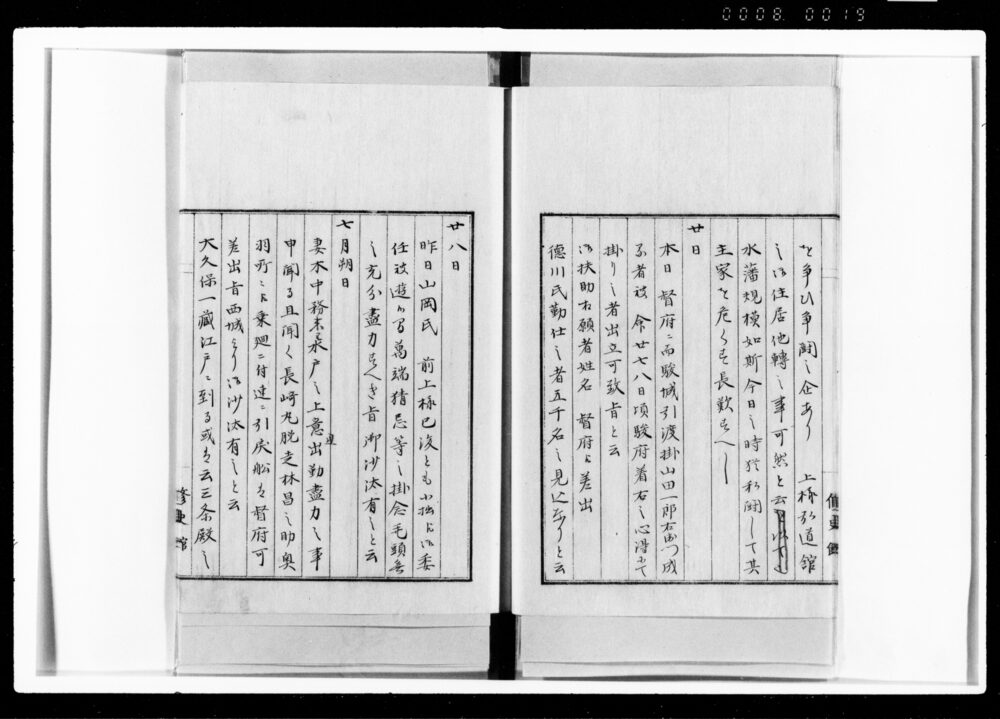 0008 0019
を争ひ争鬪之企あり　上様弘道館
之御住居他轉之事可然と云
水藩規模如斯今日之時猶私鬪して其
主家を危くす長歎すへし
廿日
本日　督府ニ而駿城引渡掛山田一郎右衛門成
る者被　命廿七八日頃駿府着右之心得ニて
掛り之者出立可致旨と云
御扶助右願者姓名　督府ニ差出
德川氏勤仕之者五千名之見込なりと云
修史館
廿八日
昨日山岡氏　前上様已後とも小拙ゟ御委
任被遊候間萬端猜忌等之掛念毛頭無
之充分盡力すへき旨御沙汰有之と云
七月朔日
妻木中務來水戸之上意出勤盡力之事
申聞る且聞く長崎丸脱走林昌之助奥
羽所ニゟ乗廻ニ付速ニ引戻船は督府可
差出旨西城より御沙汰有之と云
大久保一藏江戸ニ到る或は云三条殿之
修史館